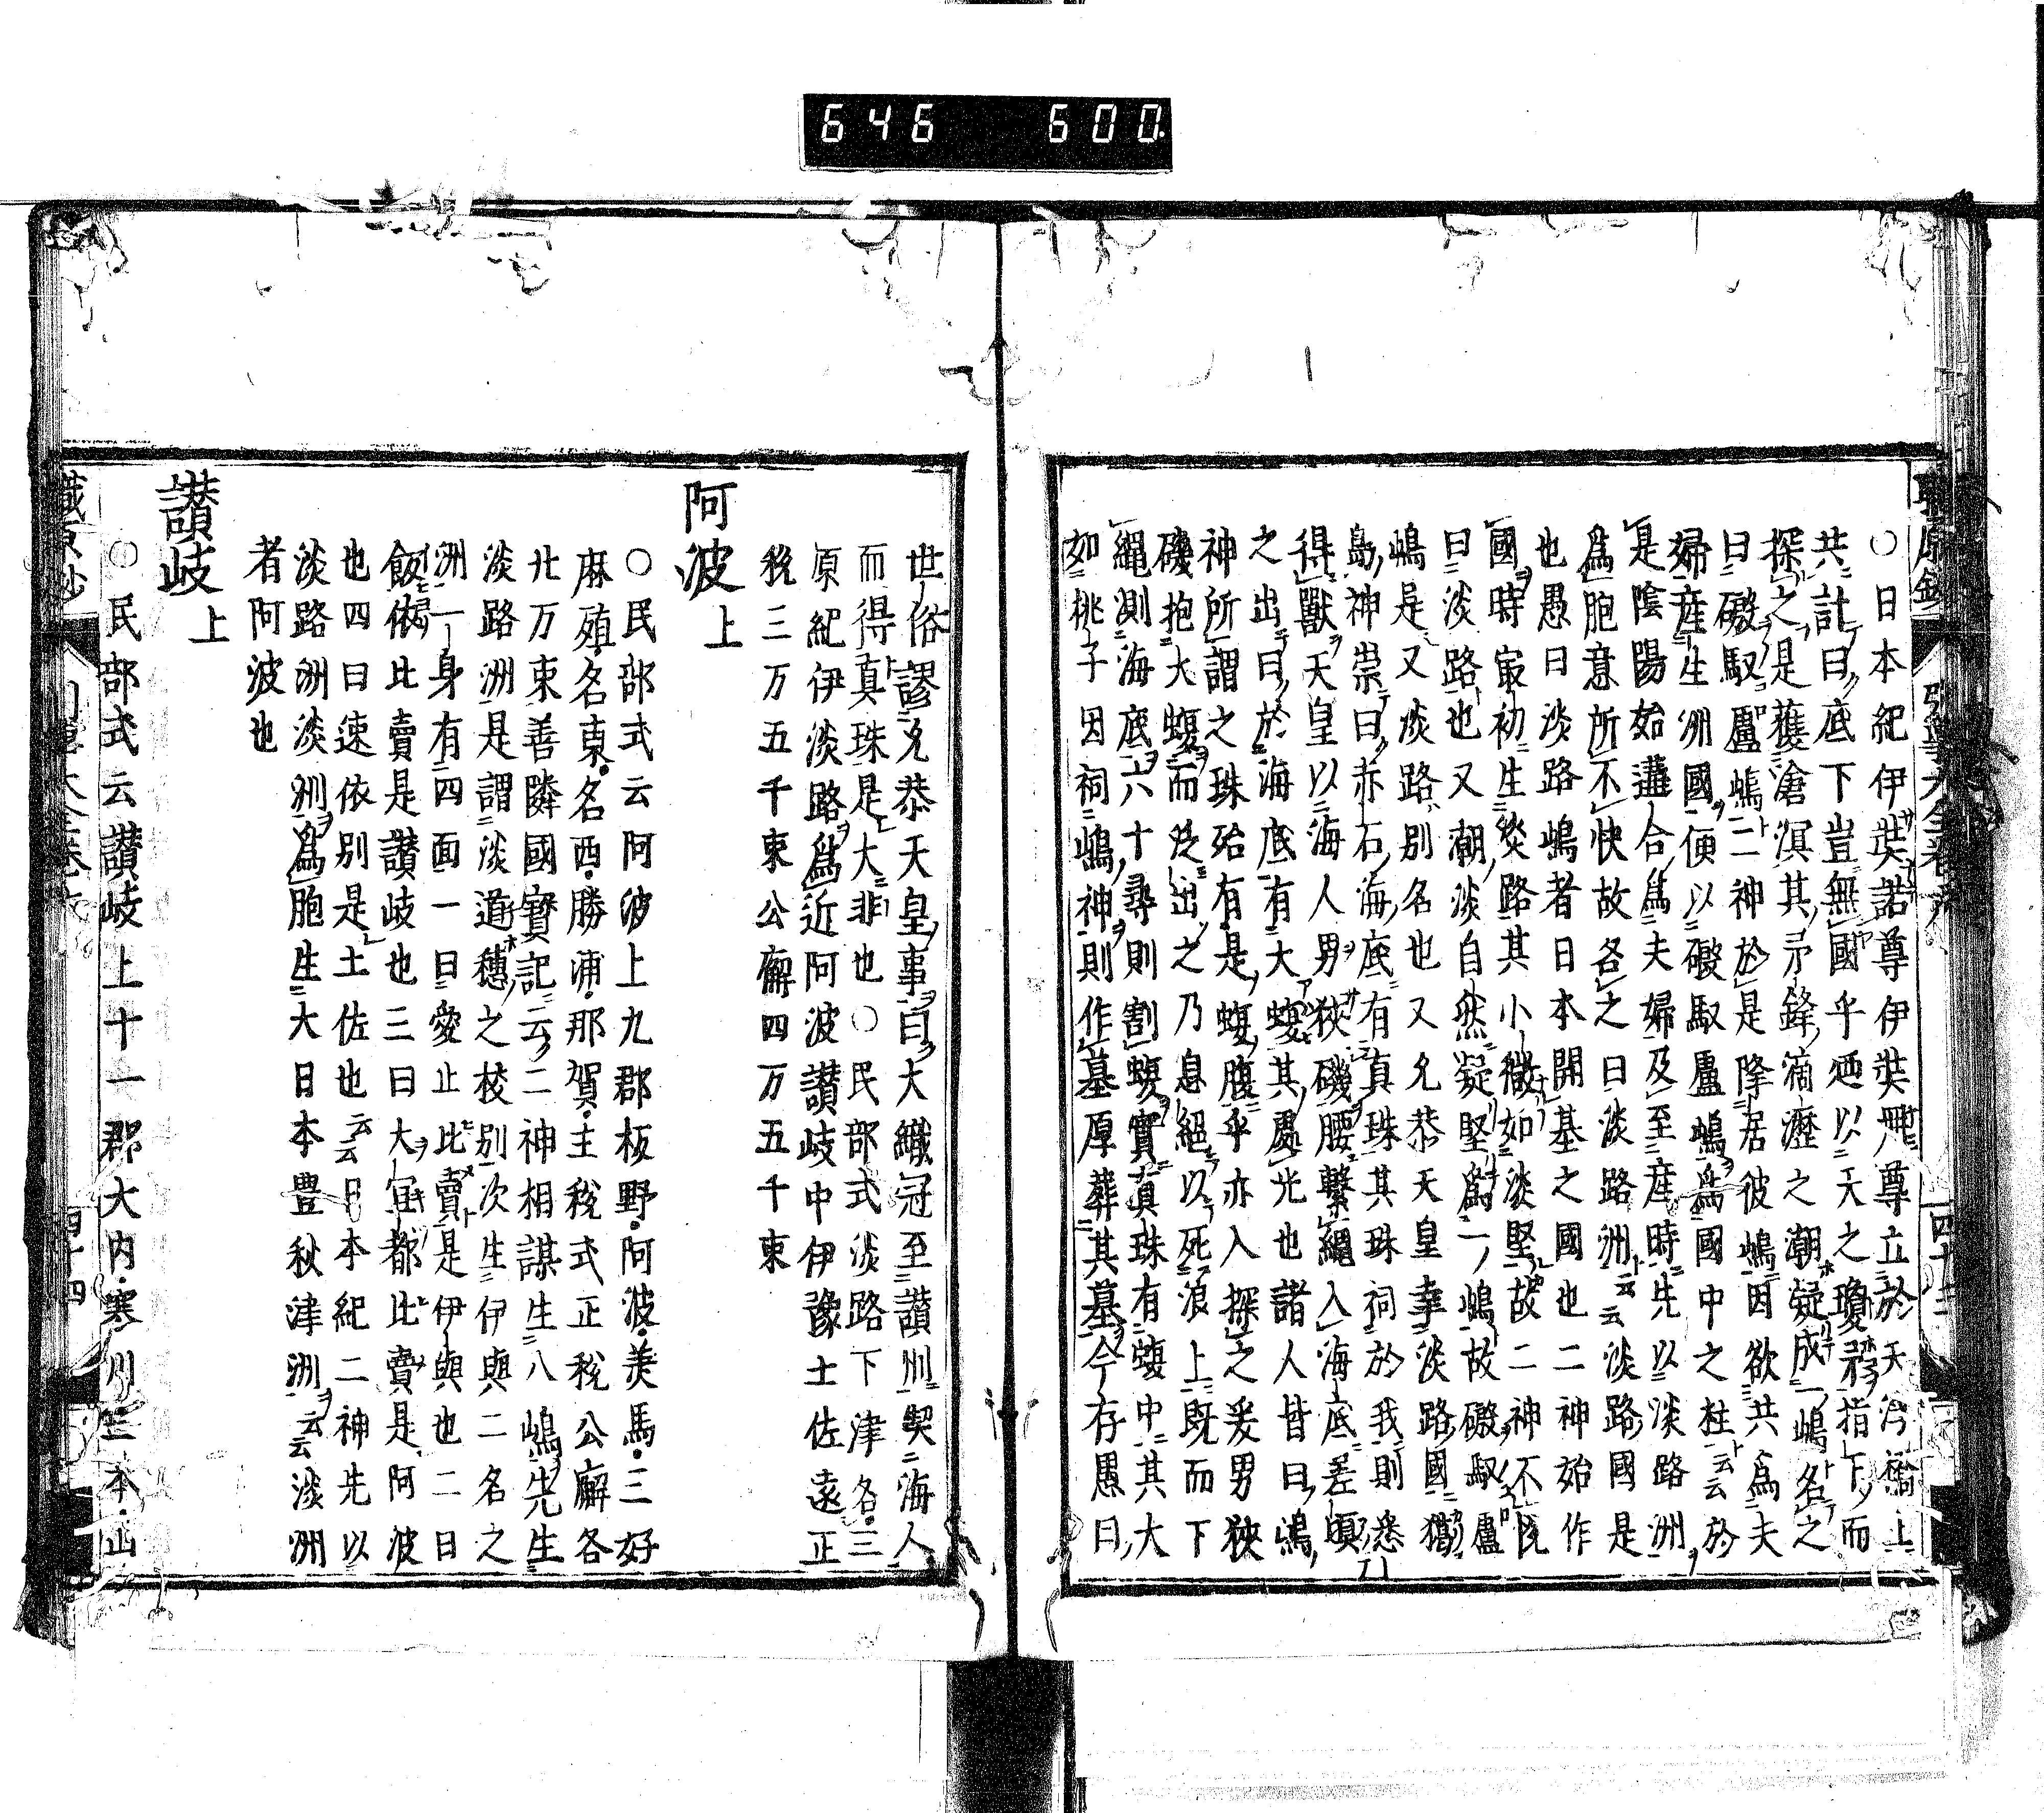 646 600.
○日本紀伊弉諾尊伊弉冊尊立於天浮橋上
共計曰底下豈無國乎廼以天之瓊矛指下而
探之是獲滄溟其矛鋒滴瀝之潮凝成一嶋名之
曰磤馭盧嶋二神於是降居彼嶋因欲共爲夫
婦産生洲國便以磤馭盧嶋爲國中之柱云云於
是陰陽始遘合爲夫婦及至産時先以淡路洲
爲胞意所不快故各之曰淡路洲云云淡路國是
也愚曰淡路嶋者日本開基之國也二神始作
國時㝡初生淡路其小微如淡堅故二神不旣
曰淡路也又潮淡自然凝堅爲一嶋故磤馭盧
嶋是又淡路別名也又允恭天皇幸淡路國獵
島神祟曰赤石海底有真珠其珠祠於我則悉
得獸天皇以海人男狹磯腰繫繩入海底差頃
之出曰於海底有大蝮其處光也諸人皆曰嶋
神所謂之珠殆有是蝮腹乎亦入探之爰男狹
磯抱大蝮而泛出之乃息絕以死浪上既而下
繩測海底六十尋則割蝮實真珠有蝮中其大
如桃子因祠嶋神則作墓厚葬其墓今存愚曰
世俗謬允恭天皇事曰大織冠至讃州契海人
而得真珠是大非也○民部式淡路下津名三
原紀伊淡路爲近阿波讃岐中伊豫土佐遠正
稅三万五千束公廨四万五千束
阿波上
○民部式云阿波上九郡板野阿波美馬三好
麻殖名東名西勝浦那賀主稅式正稅公廨各
廿万束善隣國寶記云二神相謀生八嶋先生
淡路洲是謂淡道穗之校別次生伊與二名之
洲一身有四面一曰愛止比賣是伊與也二曰
飯依比賣是讃岐也三曰大宜都比賣是阿波
也四曰速依別是土佐也云云日本紀二神先以
淡路洲淡洲爲胞生大日本豊秋津洲云云淡洲
者阿波也
讃岐上
○民部式云讃岐上十一郡大内寒川三木山
四十四